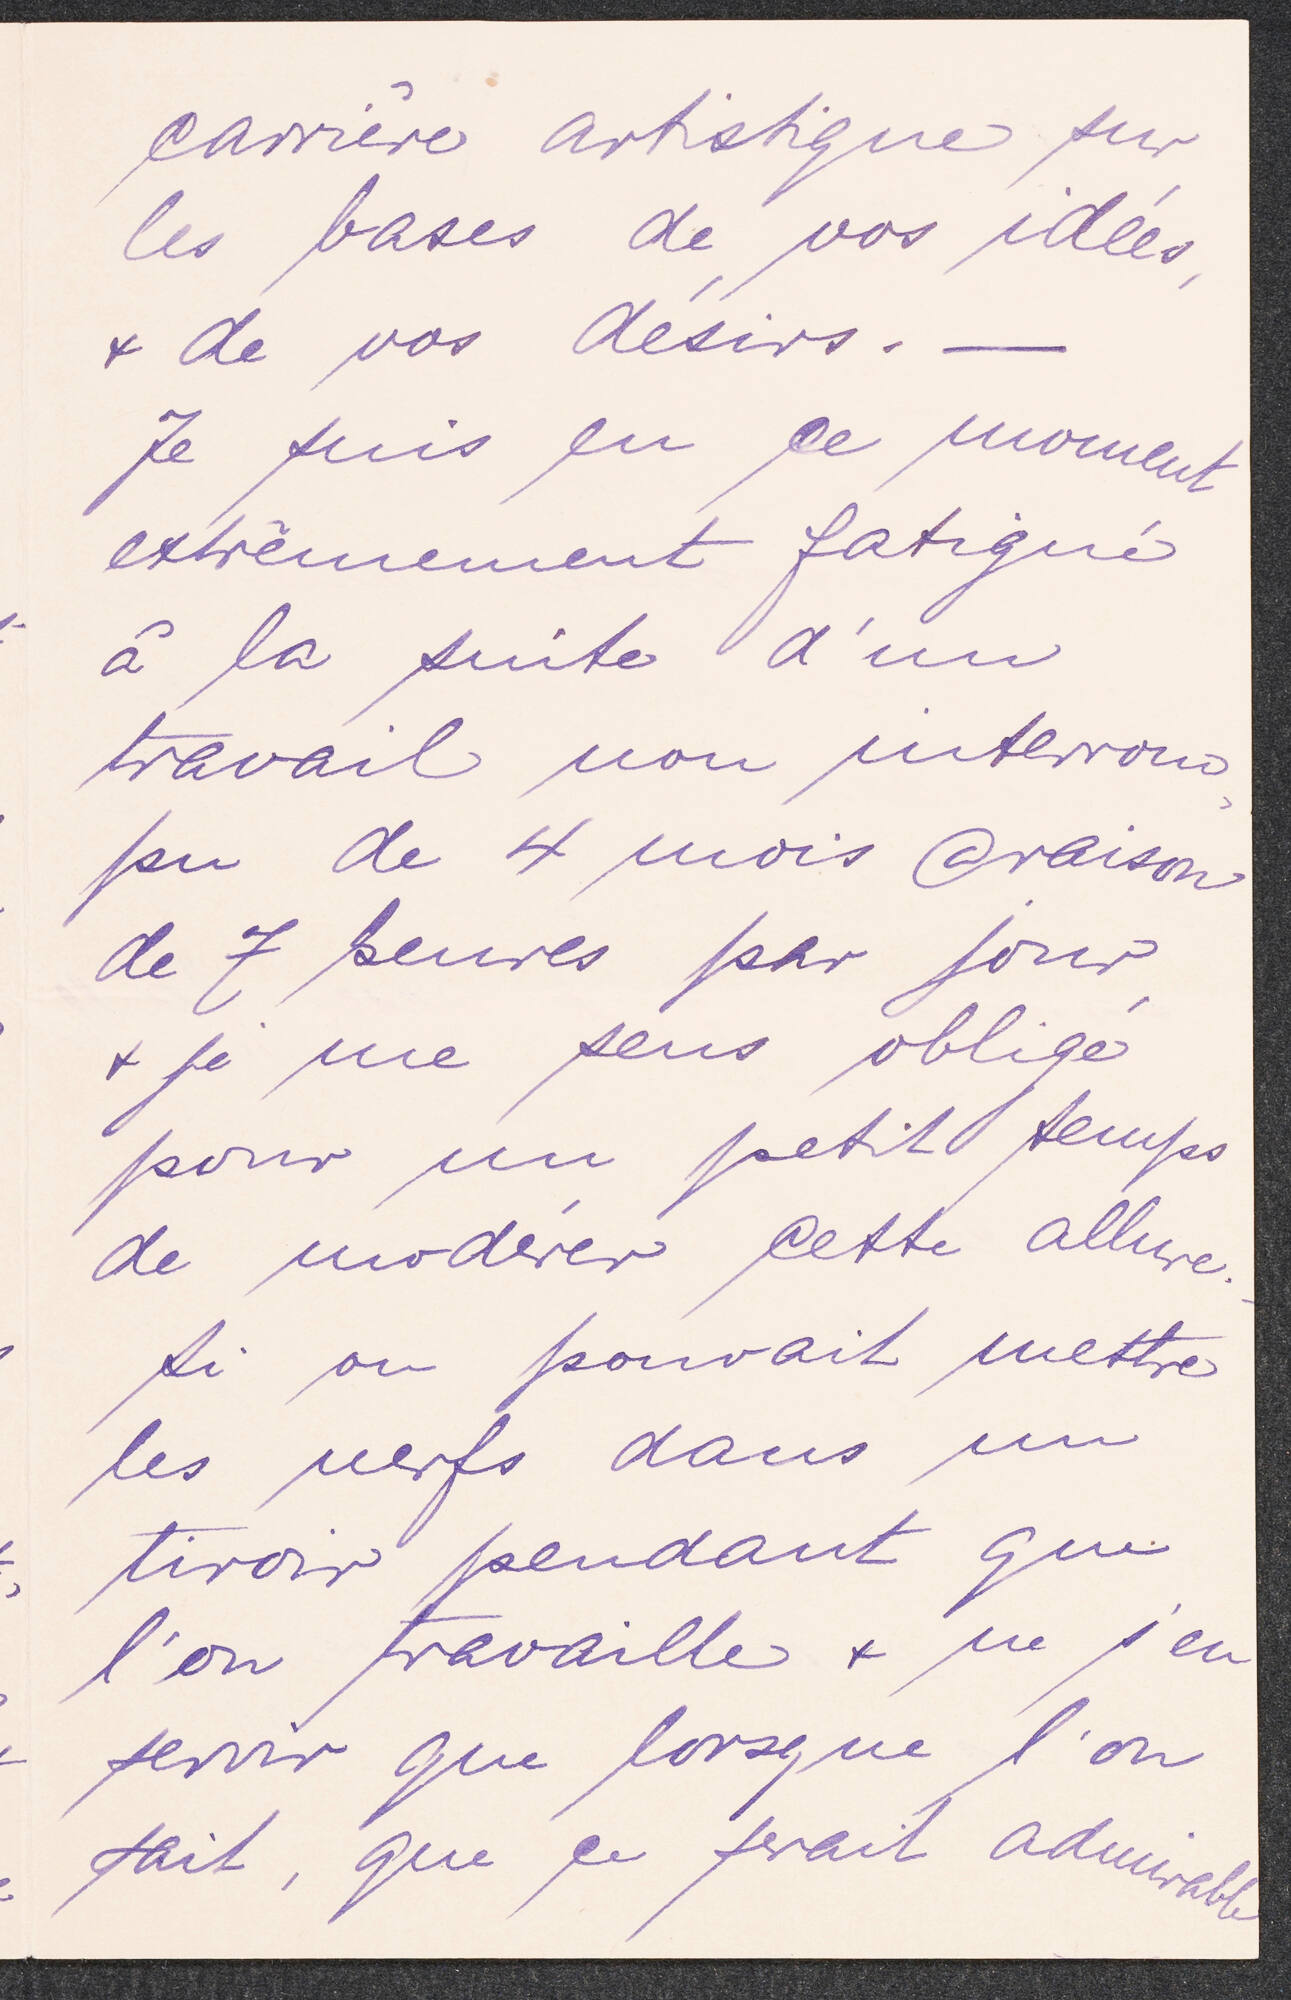 carrière artistique sur
les bases de vos idées,
+ de vos désirs. —
Je suis en ce moment
extrêmement fatigué
à la suite d'un
travail non interrom-
pu de 4 mois à raison
de 7 heures par jour
+ je me sens obligé
pour un petit temps
de modérer cette allure.-
Si on pouvait mettre
les nerfs dans un
tiroir pendant que
l'on travaille + ne s'en
servir que lorsque l'on
sait, que ce serait admirable